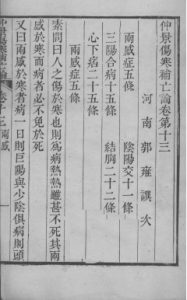 仲景傷寒補亡論卷第十三
河南郭雍譔次
兩感症五條 陰陽交一條
三陽合病十五條 結胸二十二條
心下痞二十五條
兩感症五條
素問曰人之傷於寒也則爲病熱熱雖甚不死其兩
感於寒而病者必不免於死
又曰兩感於寒者病一日則巨陽與少陰俱病則頭
卷十三 兩感